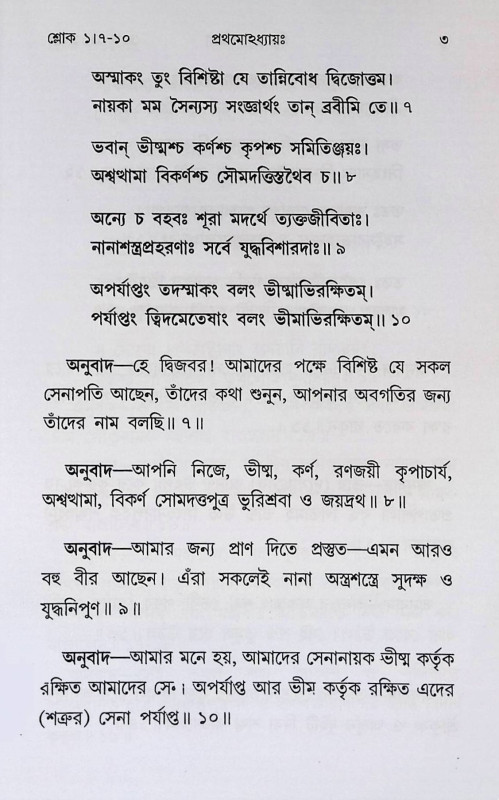 শ্লোক ১।৭-১০ প্রথমোঽধ্যায়ঃ ৩
অস্মাকং তুং বিশিষ্টা যে তান্নিবোধ দ্বিজোত্তম।
নায়কা মম সৈন্যস্য সংজ্ঞার্থং তান্ ব্রবীমি তে॥ ৭
ভবান্ ভীষ্মশ্চ কর্ণশ্চ কৃপশ্চ সমিতিঞ্জয়ঃ।
অশ্বত্থামা বিকর্ণশ্চ সৌমদত্তিস্তথৈব চ॥ ৮
অন্যে চ বহবঃ শূরা মদর্থে ত্যক্তজীবিতাঃ।
নানাশস্ত্রপ্রহরণাঃ সর্বে যুদ্ধবিশারদাঃ॥ ৯
অপর্যাপ্তং তদস্মাকং বলং ভীষ্মাভিরক্ষিতম্।
পর্যাপ্তং ত্বিদমেতেষাং বলং ভীমাভিরক্ষিতম্॥ ১০
অনুবাদ—হে দ্বিজবর! আমাদের পক্ষে বিশিষ্ট যে সকল
সেনাপতি আছেন, তাঁদের কথা শুনুন, আপনার অবগতির জন্য
তাঁদের নাম বলছি॥ ৭॥
অনুবাদ—আপনি নিজে, ভীষ্ম, কর্ণ, রণজয়ী কৃপাচার্য,
অশ্বত্থামা, বিকর্ণ সোমদত্তপুত্র ভুরিশ্রবা ও জয়দ্রথ॥ ৮॥
অনুবাদ—আমার জন্য প্রাণ দিতে প্রস্তুত—এমন আরও
বহু বীর আছেন। এঁরা সকলেই নানা অস্ত্রশস্ত্রে সুদক্ষ ও
যুদ্ধনিপুণ॥ ৯॥
অনুবাদ—আমার মনে হয়, আমাদের সেনানায়ক ভীষ্ম কর্তৃক
রক্ষিত আমাদের অপর্যাপ্ত আর ভীম কর্তৃক রক্ষিত এদের
(শত্রুর) সেনা পর্যাপ্ত॥ ১০॥